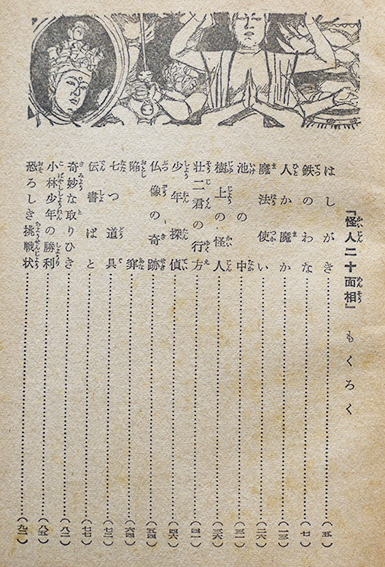 『怪人二十面相』 もくろく
はしがき……(五)
鉄のわな……(七)
人か魔か……(一三)
魔法使い……(二六)
池の中……(三一)
樹上の怪人……(三六)
壮二君の行方……(四一)
少年探偵……(四六)
仏像の奇跡……(五四)
陥穽……(六四)
七つ道具……(七三)
伝書ばと……(七七)
奇妙な取りひき……(八二)
小林少年の勝利……(八五)
恐ろしき挑戦状……(九二)